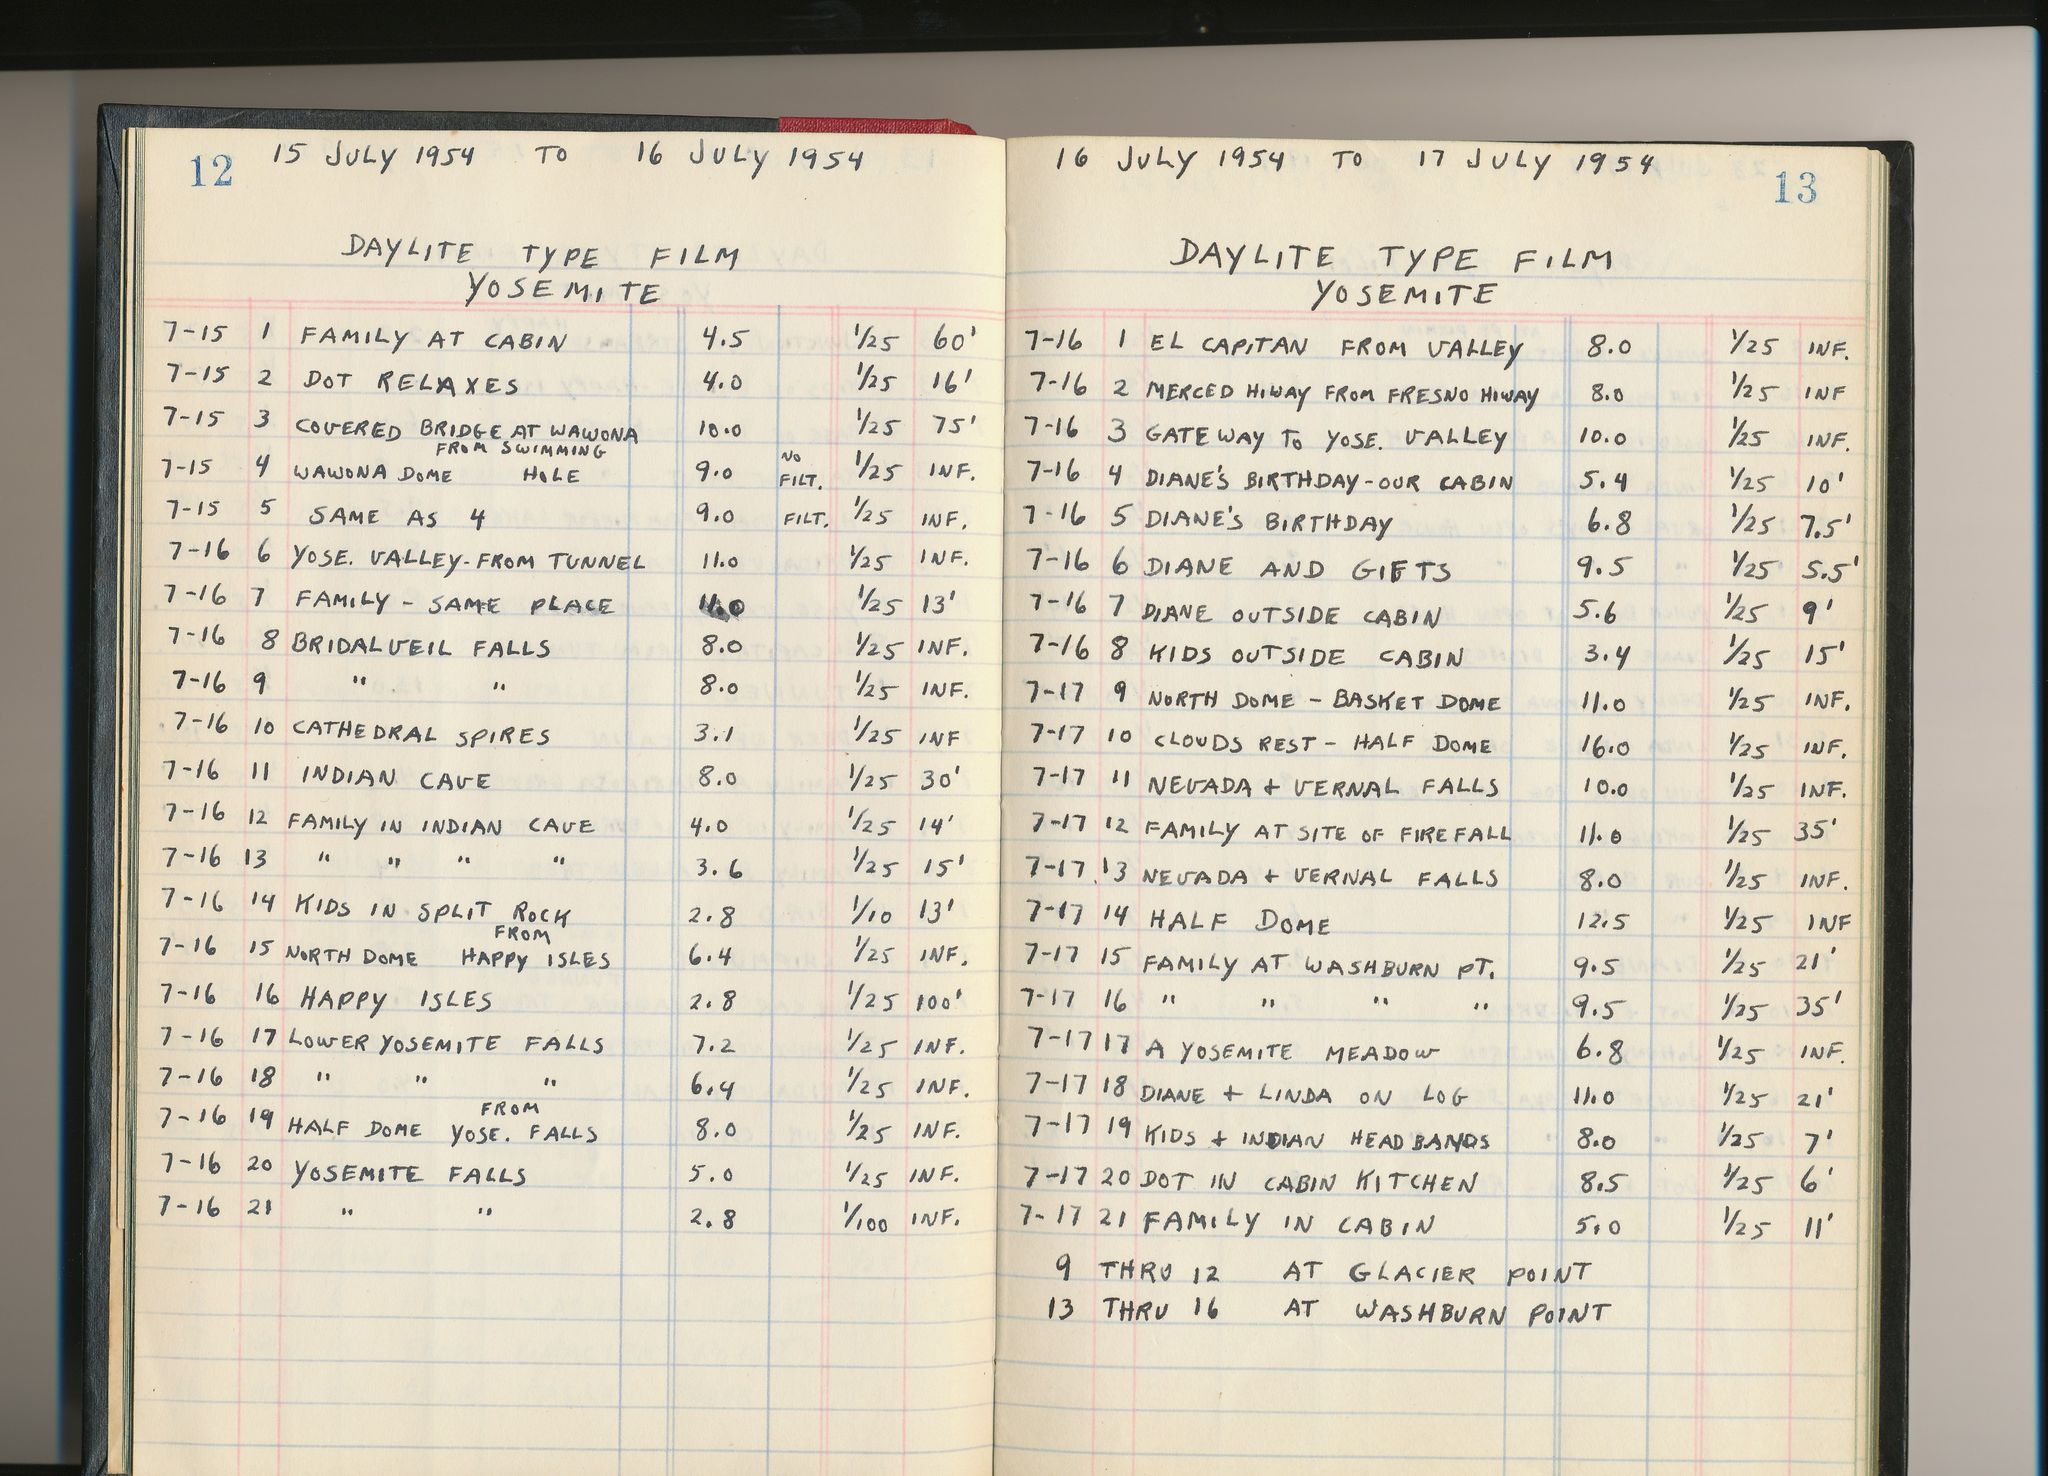 12 15 JULY 1954 TO 16 JULY 1954
DAYLITE TYPE FILM
YOSEMITE
7-15 1 FAMILY AT CABIN 4.5 1/25 60'
7-15 2 DOT RELAXES 4.0 1/25 16'
7-15 3 COVERED BRIDGE AT WAWONA 10.0 1/25 75'
FROM SWIMMING
7-15 4 WAWONA DOME HOLE 9.0 NO FILT. 1/25 INF.
7-15 5 SAME AS 4 9.0 FILT. 1/25 INF.
7-16 6 YOSE. VALLEY-FROM TUNNEL 11.0 1/25 INF.
7-16 7 FAMILY - SAME PLACE 11.0 1/25 13'
7-16 8 BRIDALVEIL FALLS 8.0 1/25 INF.
7-16 9 " " 8.0 1/25 INF.
7-16 10 CATHEDRAL SPIRES 3.1 1/25 INF
7-16 11 INDIAN CAVE 8.0 1/25 30'
7-16 12 FAMILY IN INDIAN CAVE 4.0 1/25 14'
7-16 13 " " " " 3.6 1/25 15'
7-16 14 KIDS IN SPLIT ROCK 2.8 1/10 13'
FROM
7-16 15 NORTH DOME HAPPY ISLES 6.4 1/25 INF.
7-16 16 HAPPY ISLES 2.8 1/25 100'
7-16 17 LOWER YOSEMITE FALLS 7.2 1/25 INF.
7-16 18 " " " 6.4 1/25 INF.
FROM
7-16 19 HALF DOME YOSE. FALLS 8.0 1/25 INF.
7-16 20 YOSEMITE FALLS 5.0 1/25 INF.
7-16 21 " " 2.8 1/100 INF.
16 JULY 1954 TO 17 JULY 1954 13
DAYLITE TYPE FILM
YOSEMITE
7-16 1 EL CAPITAN FROM VALLEY 8.0 1/25 INF.
7-16 2 MERCED HIWAY FROM FRESNO HIWAY 8.0 1/25 INF
7-16 3 GATEWAY TO YOSE. VALLEY 10.0 1/25 INF.
7-16 4 DIANE'S BIRTHDAY-OUR CABIN 5.4 1/25 10'
7-16 5 DIANE'S BIRTHDAY 6.8 1/25 7.5'
7-16 6 DIANE AND GIFTS 9.5 1/25 5.5'
7-16 7 DIANE OUTSIDE CABIN 5.6 1/25 9'
7-16 8 KIDS OUTSIDE CABIN 3.4 1/25 15'
7-17 9 NORTH DOME - BASKET DOME 11.0 1/25 INF.
7-17 10 CLOUDS REST - HALF DOME 16.0 1/25 INF.
7-17 11 NEVADA + VERNAL FALLS 10.0 1/25 INF.
7-17 12 FAMILY AT SITE OF FIREFALL 11.0 1/25 35'
7-17 13 NEVADA + VERNAL FALLS 8.0 1/25 INF.
7-17 14 HALF DOME 12.5 1/25 INF
7-17 15 FAMILY AT WASHBURN PT. 9.5 1/25 21'
7-17 16 " " " " 9.5 1/25 35'
7-17 17 A YOSEMITE MEADOW 6.8 1/25 INF.
7-17 18 DIANE + LINDA ON LOG 11.0 1/25 21'
7-17 19 KIDS + INDIAN HEADBANDS 8.0 1/25 7'
7-17 20 DOT IN CABIN KITCHEN 8.5 1/25 6'
7-17 21 FAMILY IN CABIN 5.0 1/25 11'
9 THRU 12 AT GLACIER POINT
13 THRU 16 AT WASHBURN POINT